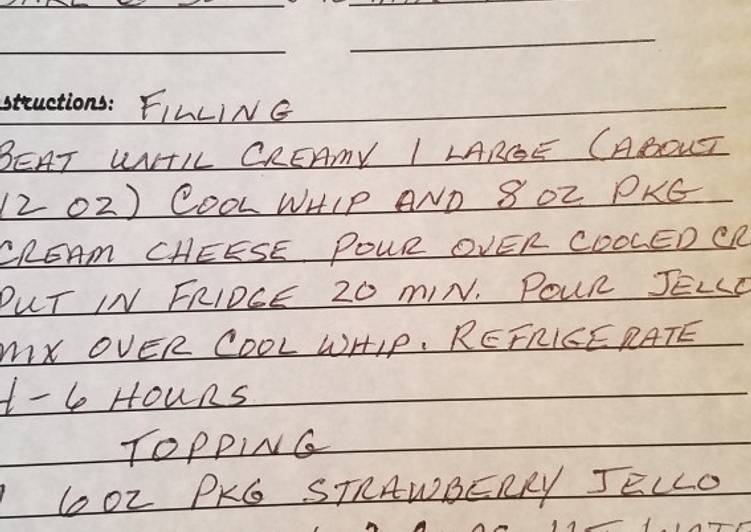 structions: FILLING
BEAT UNTIL CREAMY 1 LARGE (ABOUT
12 OZ) COOL WHIP AND 8 OZ PKG
CREAM CHEESE. POUR OVER COOLED CR
PUT IN FRIDGE 20 MIN. POUR JELLO
MIX OVER COOL WHIP. REFRIGERATE
4-6 HOURS
TOPPING
6 OZ PKG STRAWBERRY JELLO